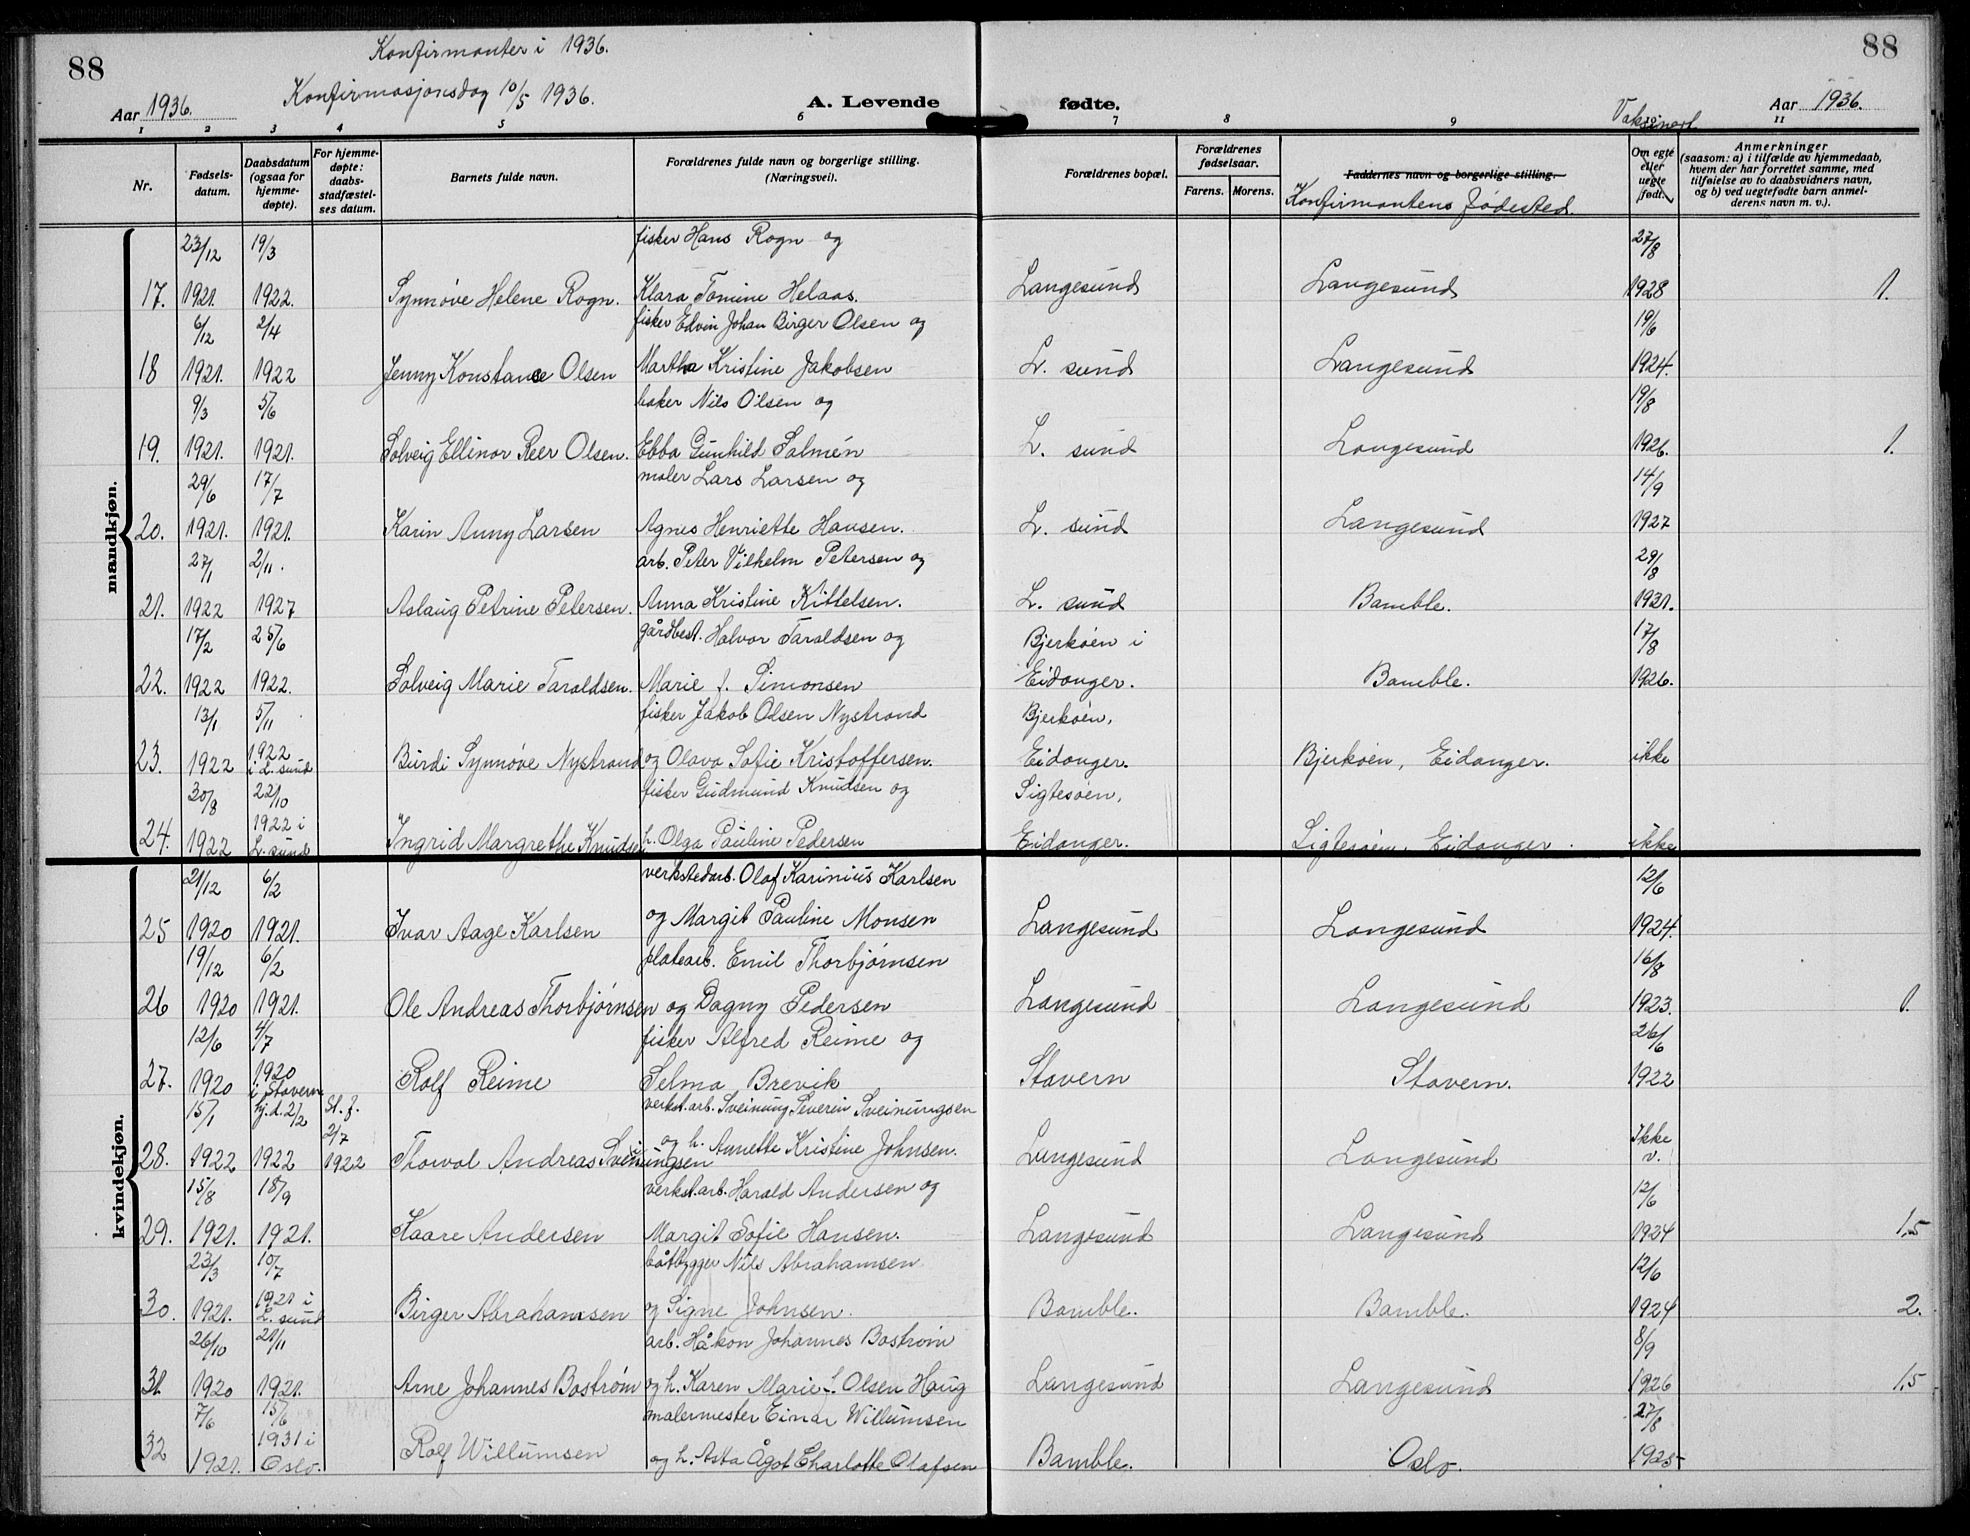 88
Konfirmanter i 1936.
88
Aar 1936.
Konfirmasjonsdag 10/5 1936.
A. Levende fødte.
Vaksinert
Aar 1936.
1 2 3 4 5 6 7 8 9 10 11
Nr.
Fødsels-
datum.
Daabsdatum
(ogsaa for
hjemme-
døpte).
For hjemme-
døpte:
daabs-
stadfæstel-
ses datum.
Barnets fulde navn.
Forældrenes fulde navn og borgerlige stilling.
(Næringsvei).
Forældrenes bopæl.
Forældrenes
fødselsaar.
Farens. Morens.
Faddernes navn og borgerlige stilling.
Konfirmantens fødested.
Om egte
eller
uegte
født.
Anmerkninger
(saasom: a) i tilfælde av hjemmedaab,
hvem der har forrettet samme, med
tilføielse av to daabsvidners navn,
og b) ved uegtefødte barn anmel-
derens navn m. v.).
mandkjøn.
23/12 19/3 fisker Hans Rogn og 27/8
17. 1921. 1922. Synnøve Helene Rogn. Klara Tomine Helaas. Langesund Langesund 1928 1.
6/12 2/4 fisker Edvin Johan Birger Olsen og 19/6
18 1921. 1922 Jenny Konstanse Olsen Martha Kristine Jakobsen L. sund Langesund 1924.
9/3 5/6 baker Nils Olsen og 19/8
19. 1921. 1921. Solveig Ellinor Reer Olsen. Ebba Gunhild Salmén L. sund Langesund 1926. 1.
29/6 17/7 maler Lars Larsen og 14/9
20. 1921. 1921. Karin Anny Larsen Agnes Henriette Hansen. L. sund Langesund 1927
27/1 2/11. arb. Peter Vilhelm Petersen og 29/8
21. 1922 1927 Aslaug Petrine Petersen. Anna Kristine Kittelsen. L. sund Bamble. 1931.
17/2 25/6 gårdbest. Halvor Taraldsen og Bjerkøen i 17/8
22. 1922 1922. Solveig Marie Taraldsen. Marie f. Simonsen Eidanger. Bamble. 1926.
13/1 5/11 fisker Jakob Olsen Nystrand Bjerkøen,
23. 1922 1922 i L. sund Burdi Synnøve Nystrand og Olava Sofie Kristoffersen. Eidanger. Bjerkøen, Eidanger. ikke
30/8 22/10 fisker Gudmund Knudsen og Sigtesøen,
24. 1922 1922 i L. sund Ingrid Margrethe Knudsen h. Olga Pauline Pedersen Eidanger. Sigtesøen, Eidanger. ikke
kvindekjøn.
21/12 6/2 verkstedarb. Olaf Karinius Karlsen 12/6
25 1920 1921. Ivar Aage Karlsen og Margit Pauline Monsen Langesund Langesund 1924.
19/12 6/2 platearb. Emil Thorbjørnsen 16/8
26 1920 1921. Ole Andreas Thorbjørnsen og Dagny Pedersen Langesund Langesund 1923. 1.
12/6 4/7 fisker Alfred Reime og 26/6
27. 1920 1920 i Stavern Rolf Reime Selma Brevik Stavern Stavern. 1922
15/1 hj.d. 2/2 St. f. 2/7 verkst.arb. Sveinung Severin Sveinungsen
28. 1922 1922 1922 Thorval Andreas Sveinungsen og h. Annette Kristine Johnsen. Langesund Langesund Ikke v.
15/8 18/9 verkst.arb. Harald Andersen og 12/6
29. 1921. 1921. Kaare Andersen Margit Sofie Hansen. Langesund Langesund 1924 1,5
23/3 10/7 båtbygger Nils Abrahamsen 12/6
30. 1921. 1921 i L. sund Birger Abrahamsen og Signe Johnsen. Bamble. Bamble. 1924 2.
26/10 21/11 arb. Håkon Johannes Bostrøm 8/9
31. 1920 1921. Arne Johannes Bostrøm og h. Karen Marie f. Olsen Haug Langesund Langesund 1926 1,5
7/6 15/6 malermester Einar Willumsen 27/8
32 1921. 1931 i Oslo. Rolf Willumsen og h. Asta Ågot Charlotte Olafsen Bamble. Oslo. 1925